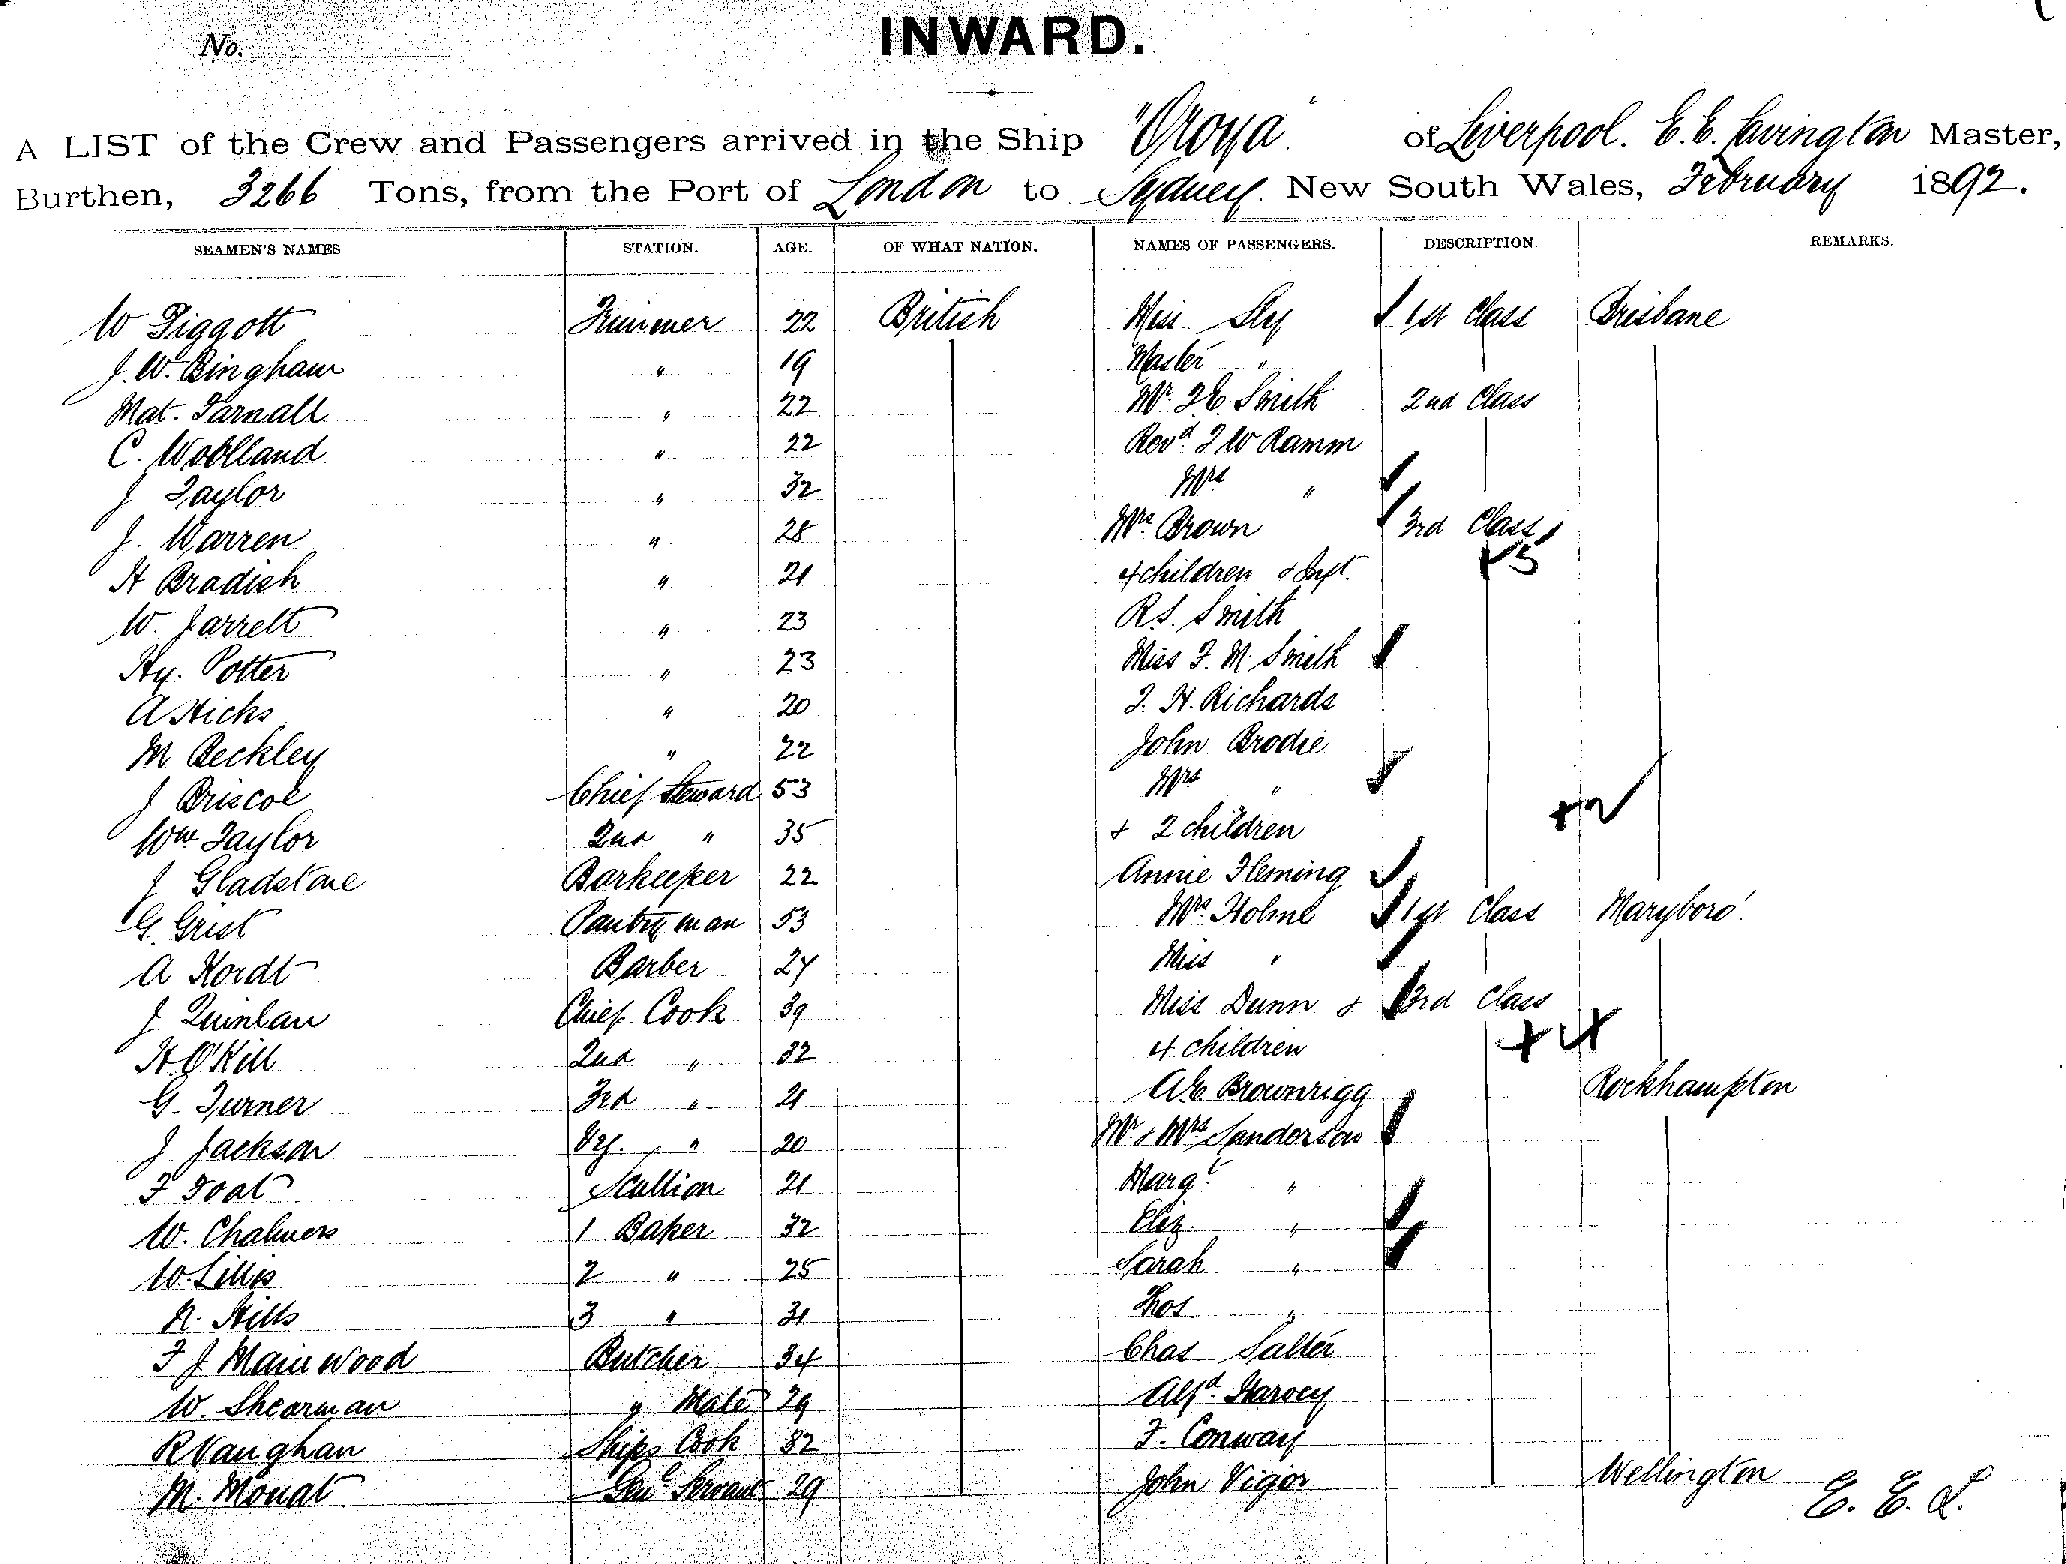 No.
INWARD.
A LIST of the Crew and Passengers arrived in the Ship "Oroya" of Liverpool. E. E. Lavington Master,
Burthen, 3266 Tons, from the Port of London to Sydney. New South Wales, February 1892.
SEAMEN'S NAMES STATION. AGE. OF WHAT NATION. NAMES OF PASSENGERS. DESCRIPTION. REMARKS.
W Piggott Trimmer 22 British Miss Sly 1st Class Brisbane
J. W. Bingham " 19 Master "
Mat. Farnall " 22 Mr. F E Smith 2nd Class
C. Woolland " 22 Revd. F W Ramm
J Taylor " 32 Mrs "
J. Warren " 28 Mrs. Brown 3rd Class
H Bradish " 21 4 children & Inft. +5
W. Jarrett " 23 R. S. Smith
Hy. Potter " 23 Miss F. M. Smith
A Hicks " 20 J. H. Richards
M Beckley " 22 John Brodie
J Briscoe Chief Steward 53 Mrs "
Wm Taylor 2nd " 35 & 2 children +2
J Gladstone Barkeeper 22 Annie Fleming
G. Grist Pantryman 53 Mrs. Holme 1st Class Maryboro'.
A Hordt Barber 27 Miss "
J Quinlan Chief Cook 39 Miss Dunn & 3rd Class
H. O'Kill 2nd " 32 4 children +4
G. Turner 3rd " 21 A E Brownrigg Rockhampton
J Jackson Vg. " 20 Mr & Mrs Sanderson
F Foat Scullion 21 Margt. "
W. Chalmers 1 Baker 32 Eliz "
W. Lillis 2 " 25 Sarah "
R. Hills 3 " 31 Thos "
F J Mainwood Butcher 34 Chas Salter
W. Shearman " Mate 29 Alfd. Harvey
R Vaughan Ships Cook 32 F. Conway
M. Mouat Genl Servant 29 John Vigor Wellington
E. E. L.